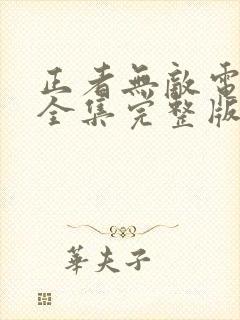 正者無敵電
全集完整版
華夫子